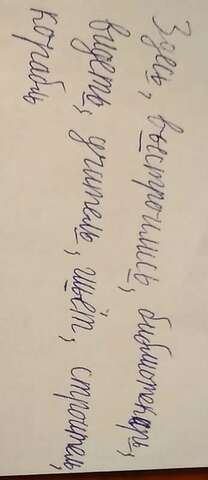 Здесь, выстроились, библиотекарь,
видеть, учитель, шьёт, строитель,
корабль